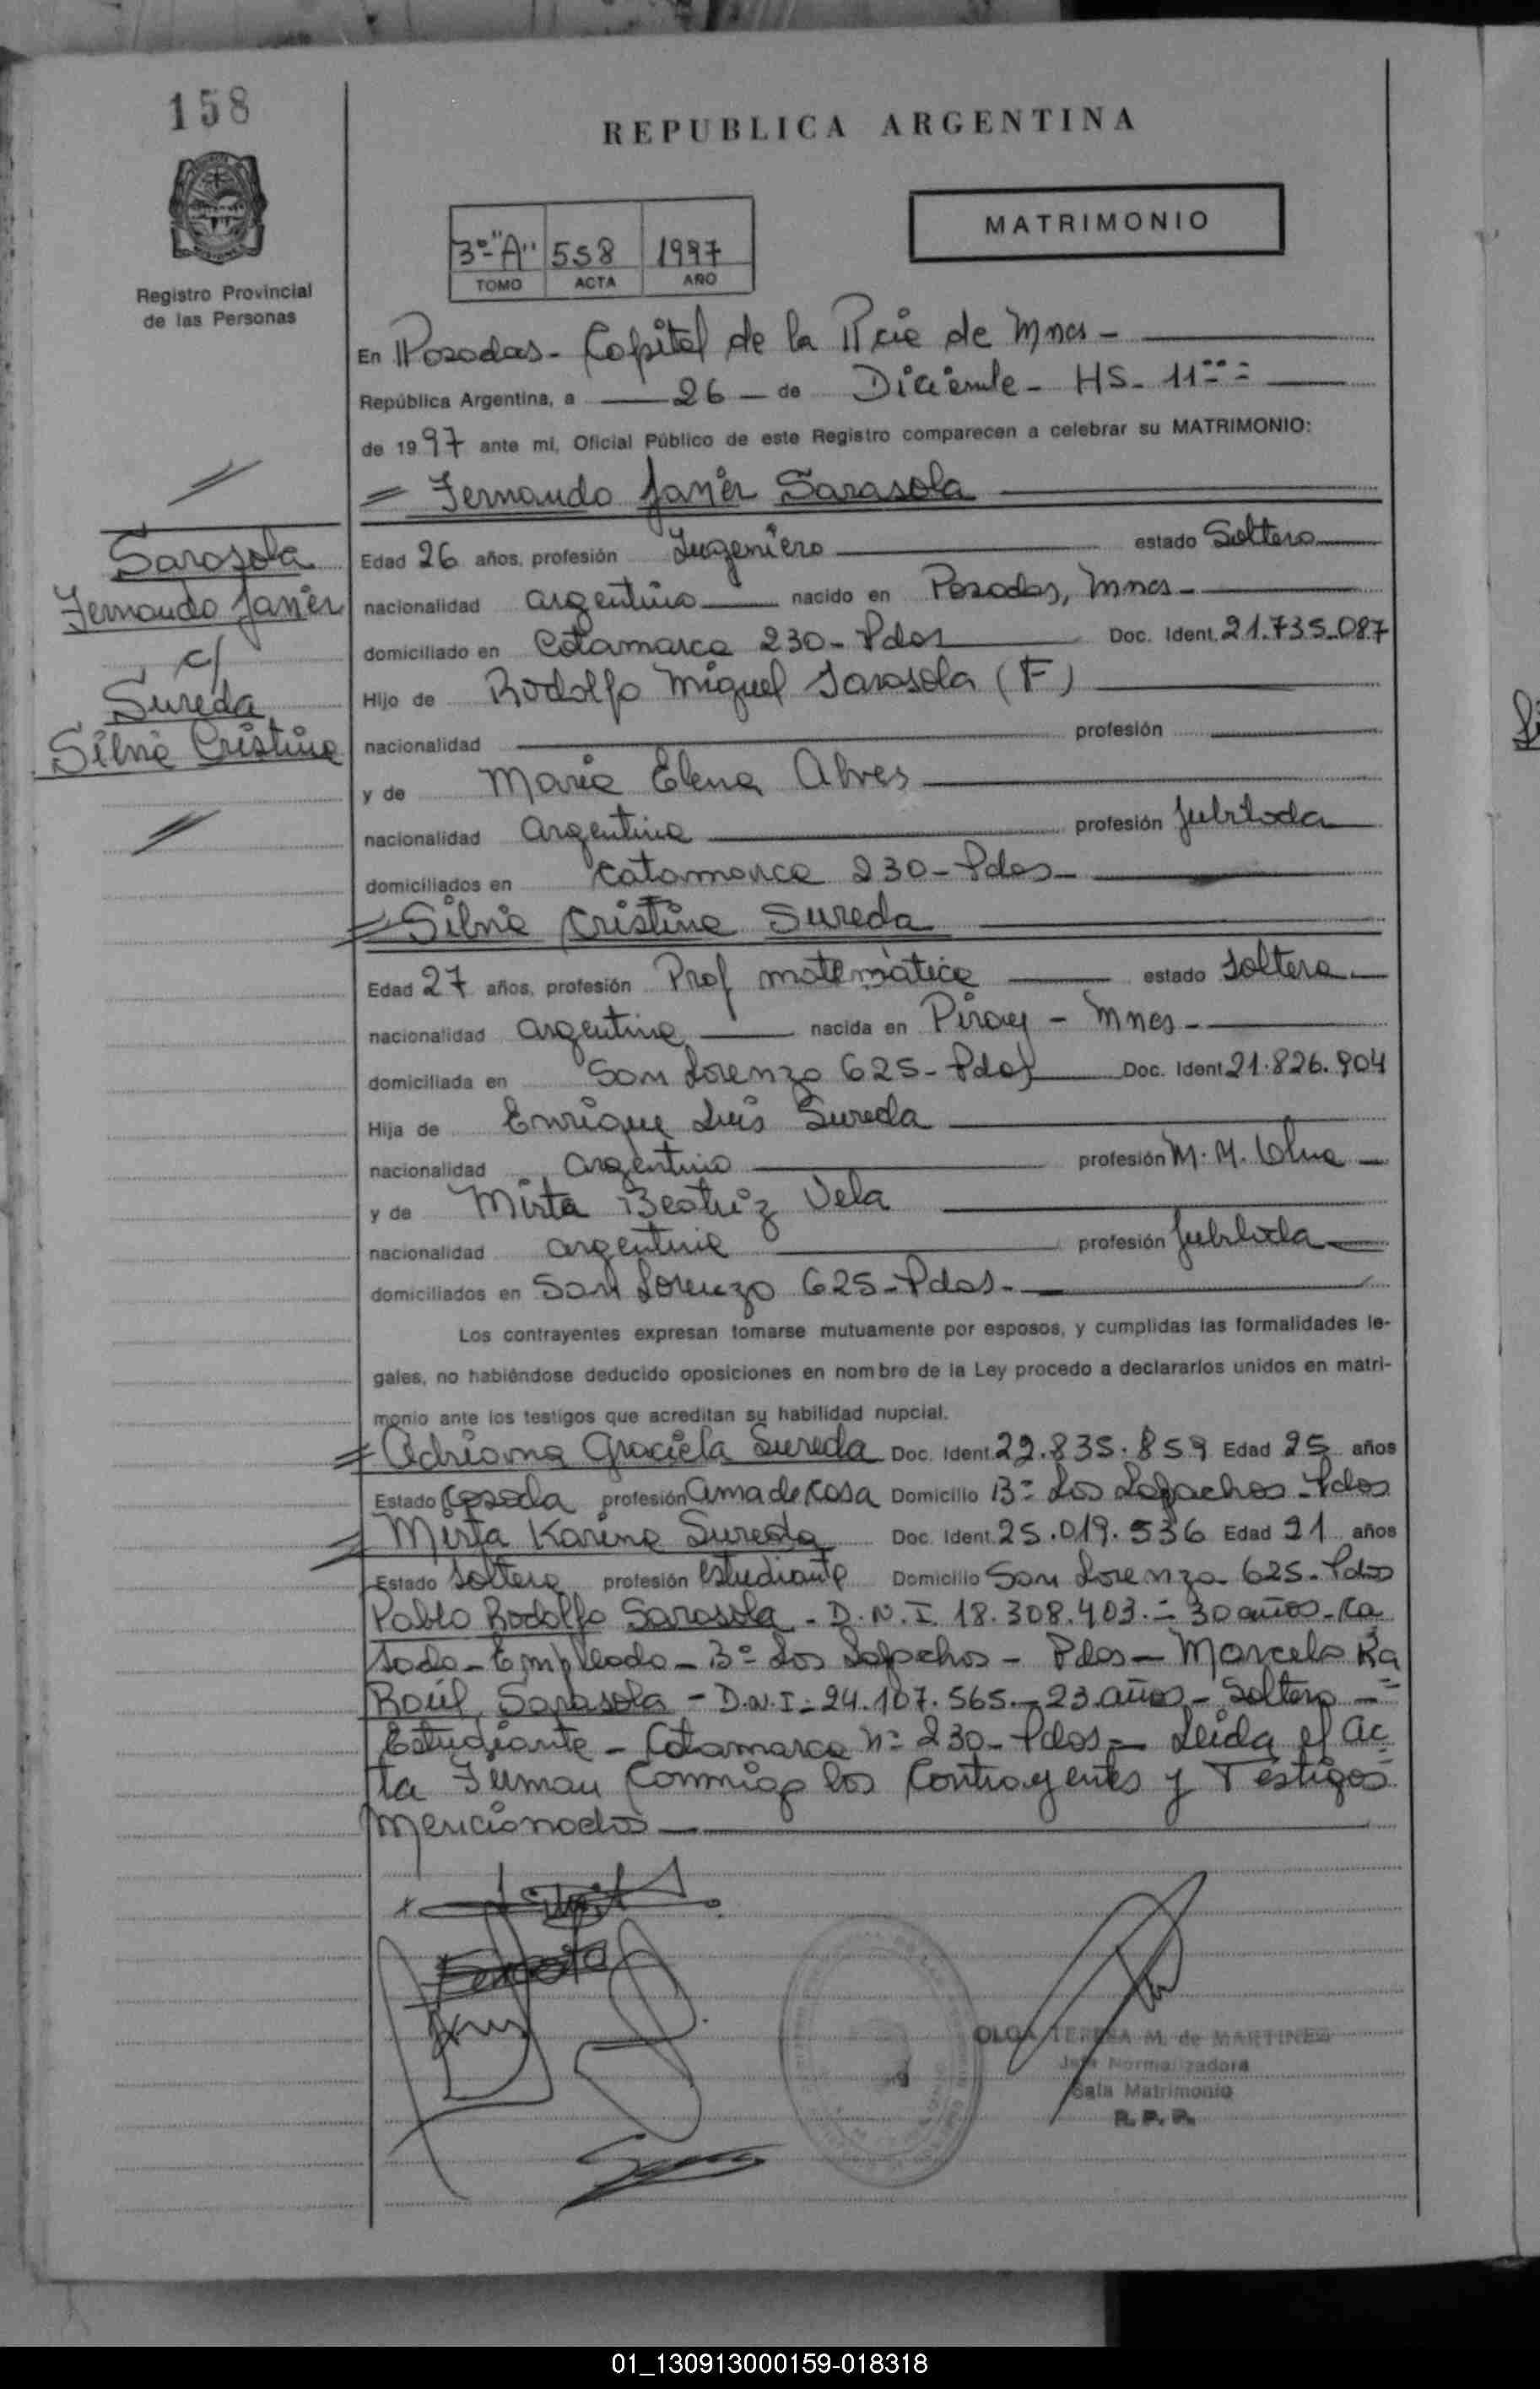 158
REPUBLICA ARGENTINA
MATRIMONIO
3º "A" 558 1997
TOMO ACTA AÑO
Registro Provincial
de las Personas
En Posadas - Capital de la Pcia de Mnes -
República Argentina, a 26 - de Diciembre - HS - 11
de 1997 ante mi, Oficial Público de este Registro comparecen a celebrar su MATRIMONIO:
Fernando Javier Sarasola
Sarasola
Fernando Javier
c/
Sureda
Silvia Cristina
Edad 26 años, profesión Ingeniero estado Soltero
nacionalidad argentino nacido en Posadas, Mnes -
domiciliado en Catamarca 230 - Pdas Doc. Ident. 21.735.087
Hijo de Rodolfo Miguel Sarasola (F)
nacionalidad profesión
y de Maria Elena Alves
nacionalidad Argentina profesión Jubilada
domiciliados en Catamarca 230 - Pdas -
Silvia Cristina Sureda
Edad 27 años, profesión Prof matemática estado Soltera
nacionalidad argentina nacida en Piray - Mnes -
domiciliada en San Lorenzo 625 - Pdas Doc. Ident. 21.826.904
Hija de Enrique Luis Sureda
nacionalidad argentino profesión M. M.
y de Mirta Beatriz Vela
nacionalidad argentina profesión Jubilada
domiciliados en San Lorenzo 625 - Pdas -
Los contrayentes expresan tomarse mutuamente por esposos, y cumplidas las formalidades le-
gales, no habiéndose deducido oposiciones en nombre de la Ley procedo a declararlos unidos en matri-
monio ante los testigos que acreditan su habilidad nupcial.
Adriana Graciela Sureda Doc. Ident. 22.835.859 Edad 25 años
Estado Casada profesión ama de casa Domicilio Bº Los Lapachos - Pdas
Mirta Karina Sureda Doc. Ident. 25.019.536 Edad 21 años
Estado Soltera profesión estudiante Domicilio San Lorenzo 625 - Pdas
Pablo Rodolfo Sarasola - D.N.I. 18.308.403 - 30 años - Ca
sado - Empleado - Bº Los Lapachos - Pdas - Marcelo Ra
Raúl Sarasola - D.N.I - 24.107.565 - 23 años - Soltero -
Estudiante - Catamarca nº 230 - Pdas - Leida el Ac
ta Firman Conmigo los Contrayentes y Testigos
mencionados
OLGA TERESA M. de MARTINEZ
Jefa Normalizadora
Sala Matrimonio
R. P. P.
01_130913000159-018318